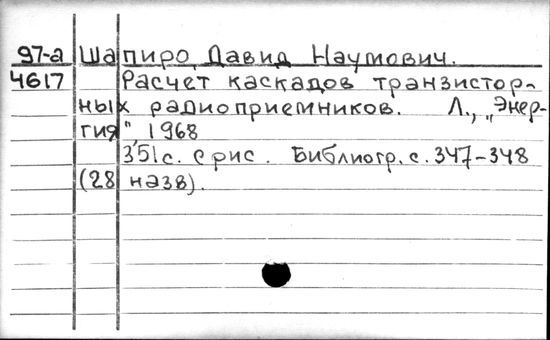 97-а Шапиро, Давид Наумович.
4617 Расчет каскадов транзистор-
ных радиоприемников. Л., „Энер-
гия" 1968
351 с. с рис. Библиогр. с. 347-348
(28 назв).